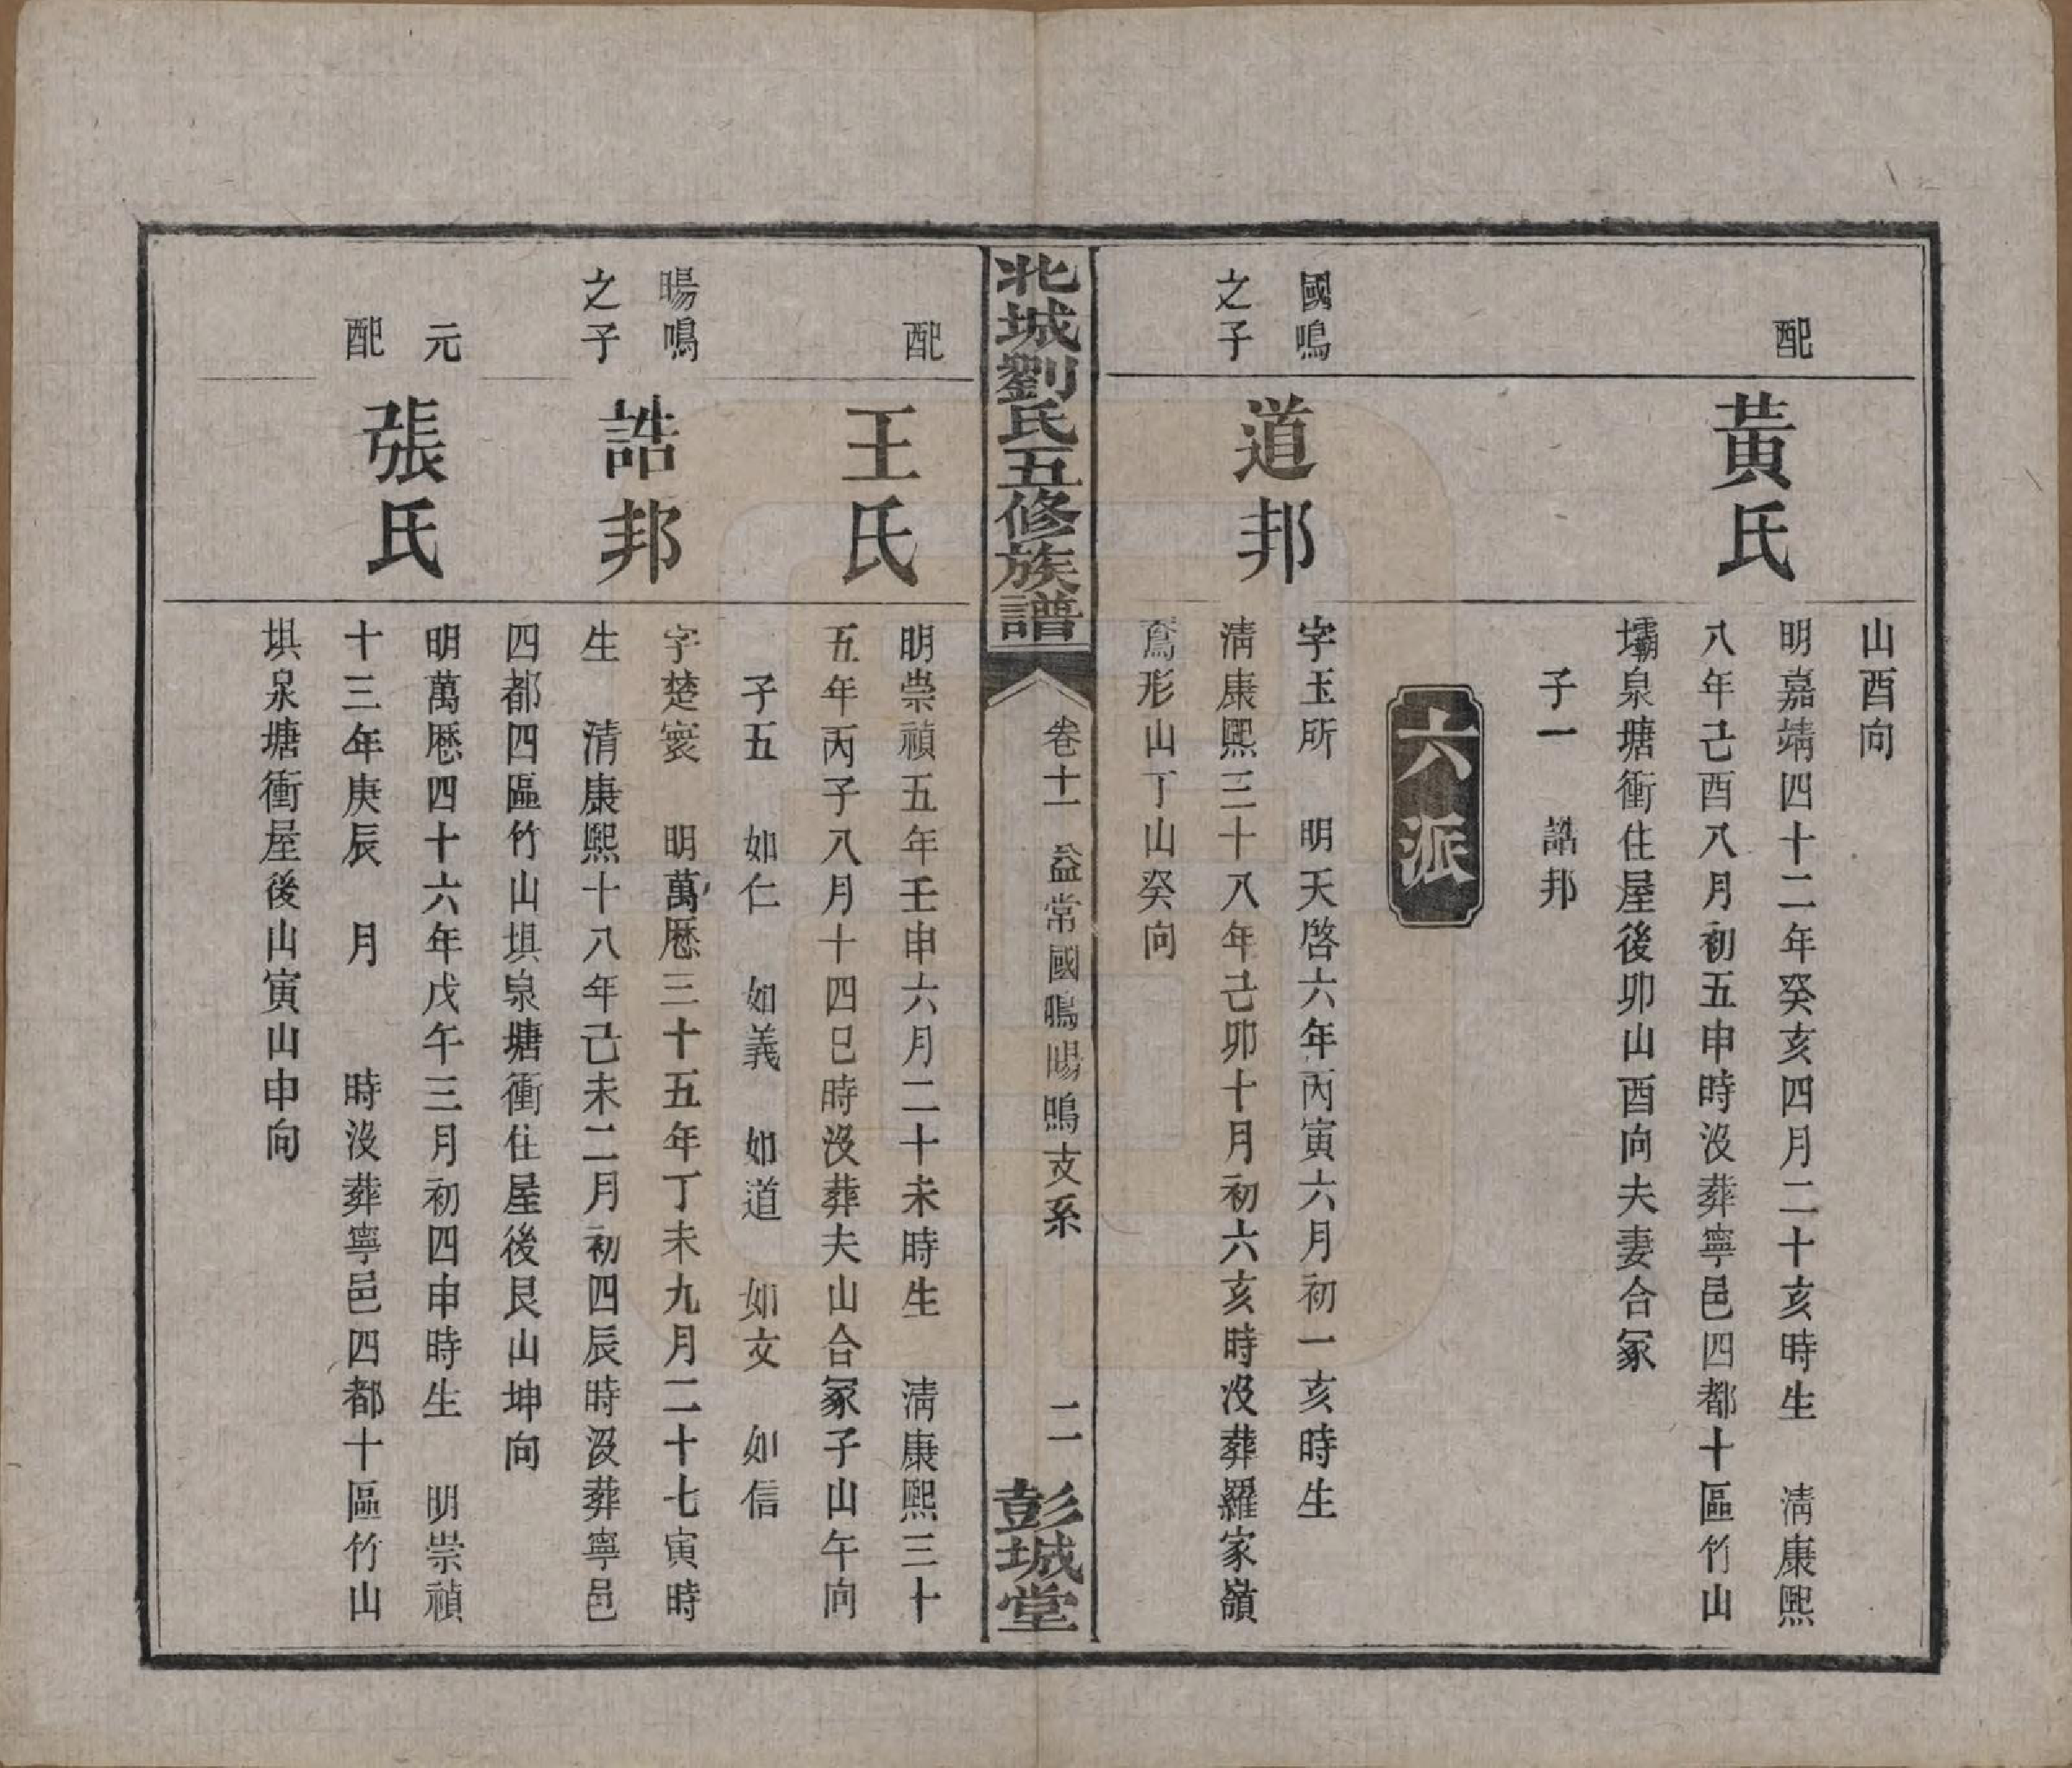 山酉向
配
黃氏
明嘉靖四十二年癸亥四月二十亥時生　清康熙
八年己酉八月初五申時沒葬寧邑四都十區竹山
壩泉塘衝住屋後卯山酉向夫妻合冢
子一　誥邦
六派
國鳴
之子
道邦
字玉所　明天啓六年丙寅六月初一亥時生
清康熙三十八年己卯十月初六亥時沒葬羅家嶺
鳶形山丁山癸向
北城劉氏五修族譜
卷十一　益常國鳴暘鳴支系
二
彭城堂
配
王氏
明崇禎五年壬申六月二十未時生　清康熙三十
五年丙子八月十四巳時沒葬夫山合冢子山午向
子五　如仁　如義　如道　如文　如信
暘鳴
之子
誥邦
字楚寰　明萬曆三十五年丁未九月二十七寅時
生　清康熙十八年己未二月初四辰時沒葬寧邑
四都四區竹山埧泉塘衝住屋後艮山坤向
元
配
張氏
明萬曆四十六年戊午三月初四申時生　明崇禎
十三年庚辰　月　時沒葬寧邑四都十區竹山
埧泉塘衝屋後山寅山申向